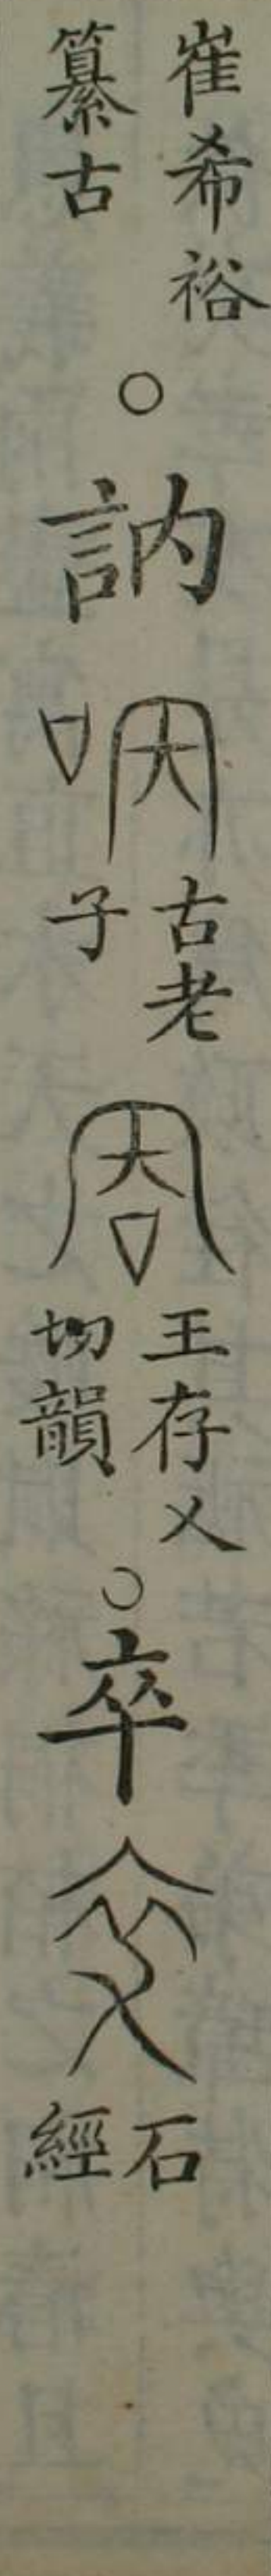 崔希裕
纂古
○訥
古老
子
王存乂
切韻
○卒
石
經